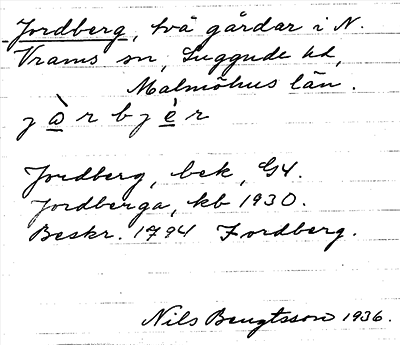 Jordberg, två gårdar i N.
Vrams sn, Luggude hd,
Malmöhus län.
j à r b j è r
Jordberg, bek, G4.
Jordberga, kb 1930.
Beskr. 1794 Jordberg.
Nils Bengtsson 1936.